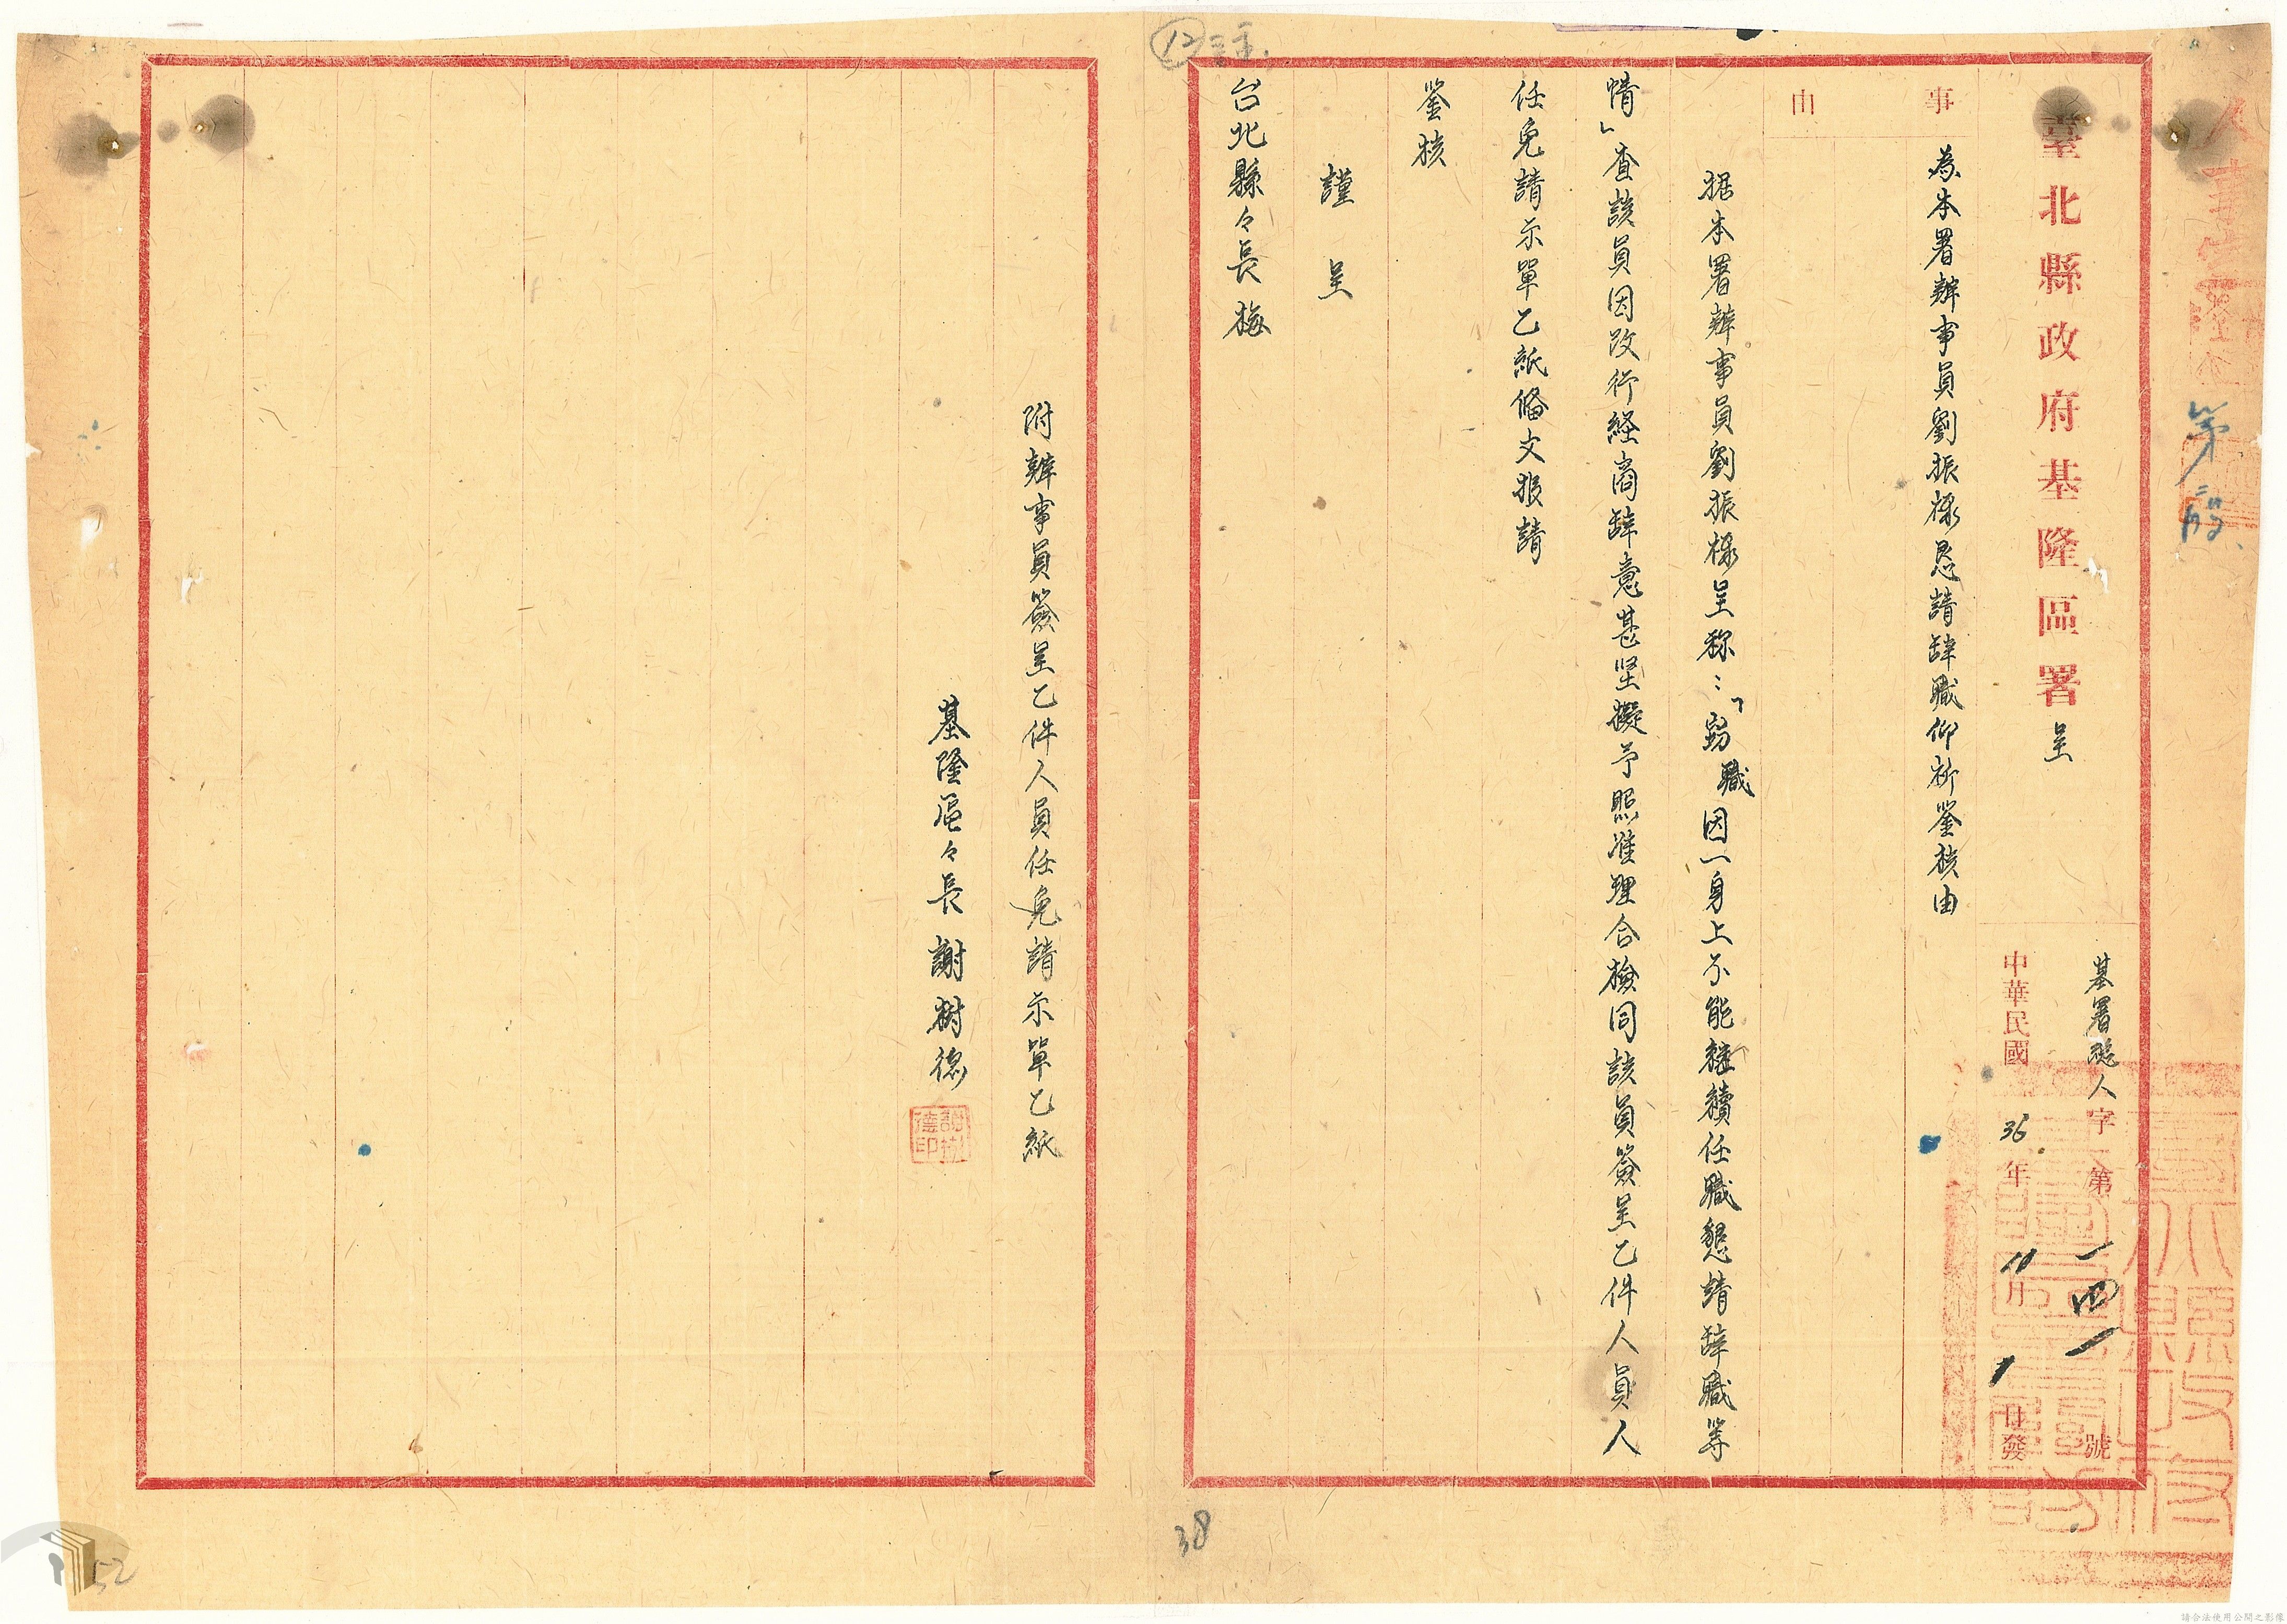 臺北縣政府基隆區署 呈
基署總人字第一四一號
中華民國36年10月1日發
事由
為本署辦事員劉振祿恳請辞職仰祈鉴核由
据本署辦事員劉振祿呈称：「竊職因一身上不能継續任職懇請辞職等
情」查該員因改行経商辞意甚坚擬予照准理合檢同該員簽呈乙件人員人
任免請示單乙紙備文报請
鉴核
謹呈
台北縣々長梅
附辦事員簽呈乙件人員任免請示單乙紙
基隆區々長 謝树德
謝樹德印
38
52
請合法使用公開之影像